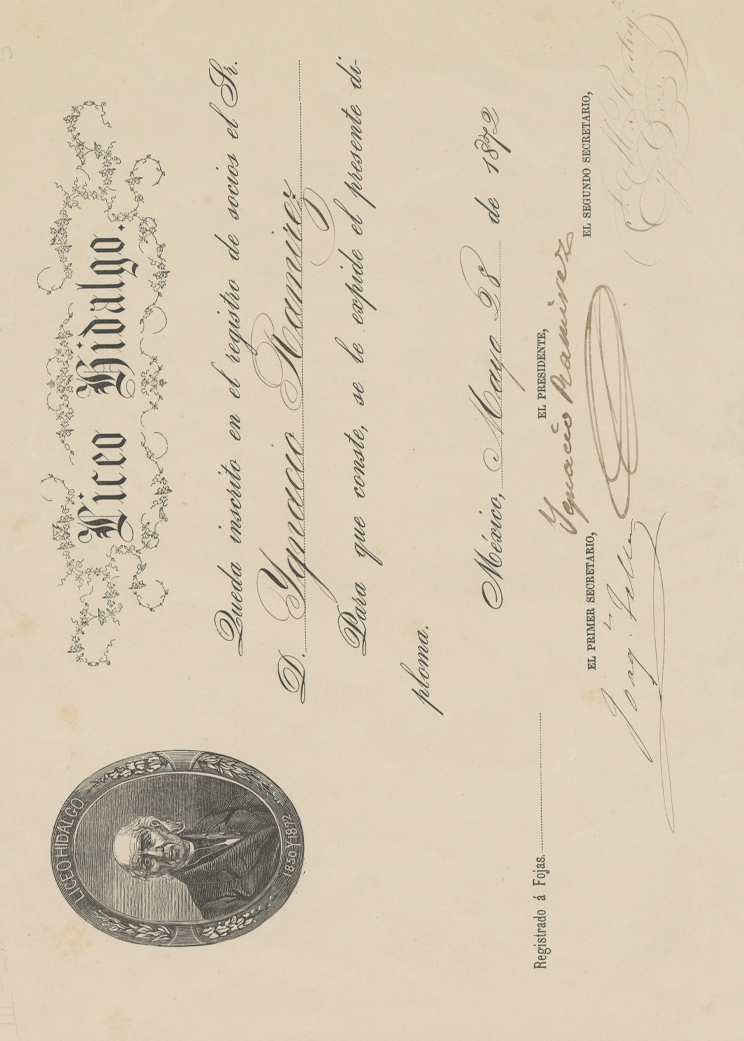 LICEO HIDALGO
1850 Y 1872
Liceo Hidalgo.
Queda inscrito en el registro de socios el Sr.
D. Ygnacio Ramirez
Para que conste, se le expide el presente di-
ploma.
México, Mayo 28 de 1872
EL PRESIDENTE,
Ygnacio Ramirez
EL PRIMER SECRETARIO,
EL SEGUNDO SECRETARIO,
Registrado á Fojas